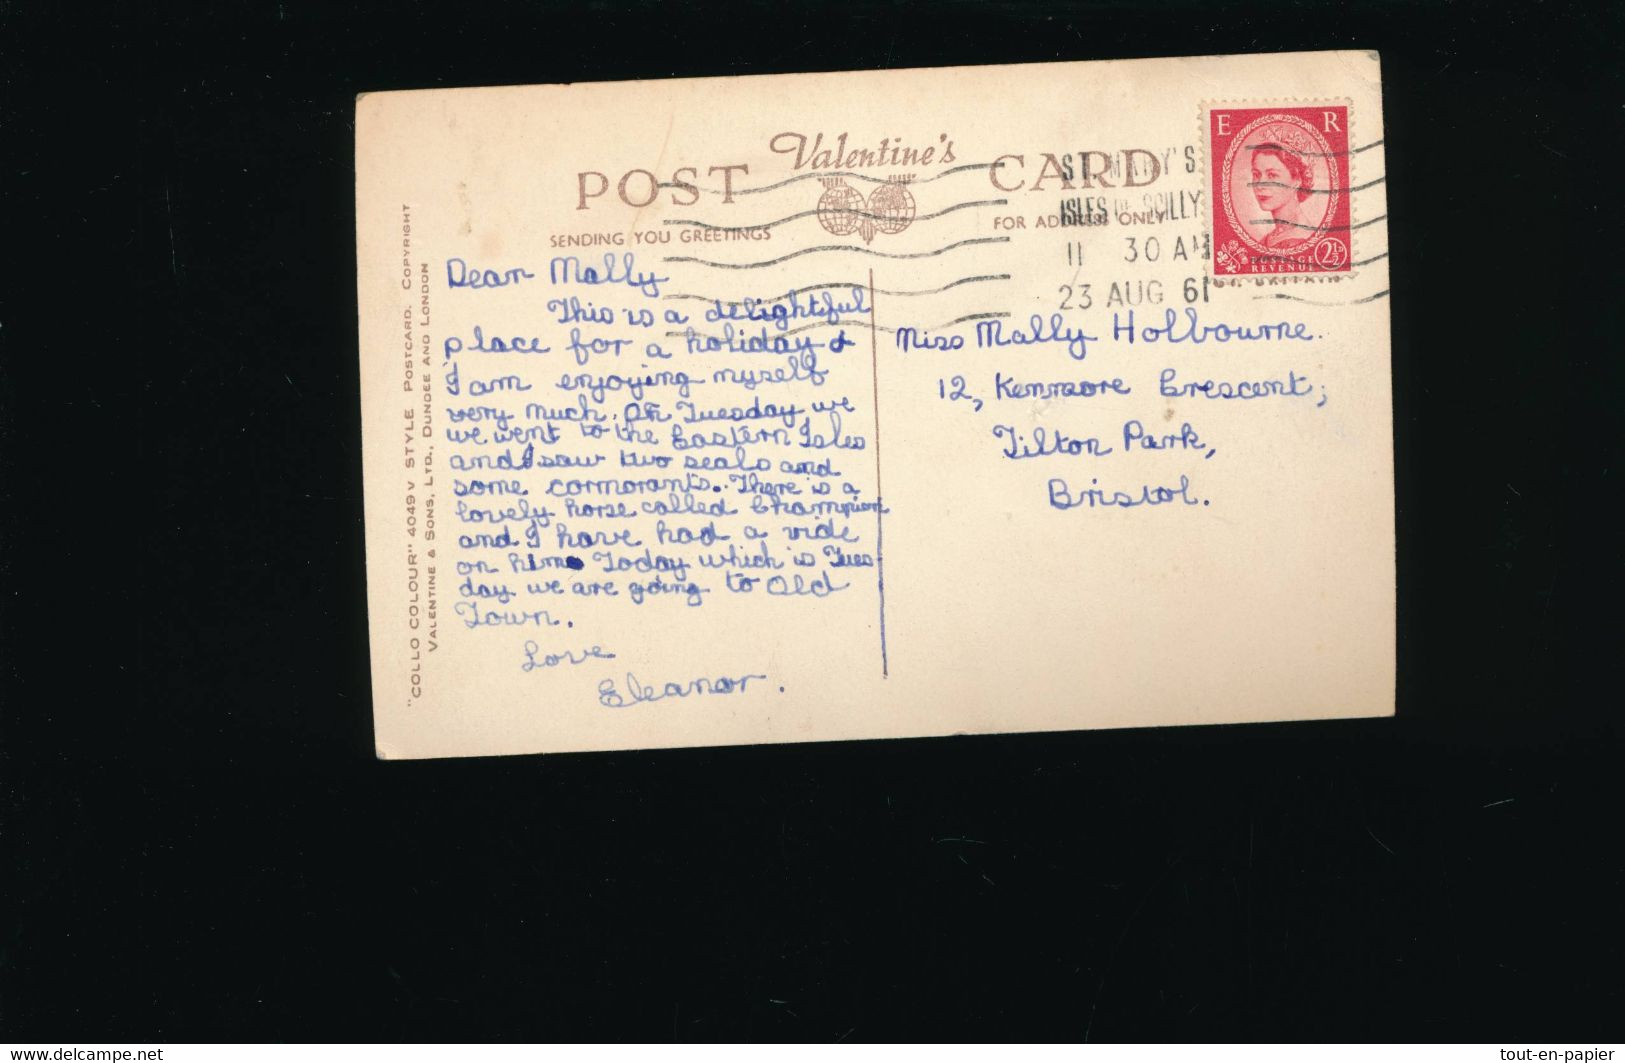 Valentine's
POST CARD
SENDING YOU GREETINGS
FOR ADDRESS ONLY
ST. MARY'S
ISLES OF SCILLY
11 30 AM
23 AUG 61
E R
POSTAGE
REVENUE
2½
Dear Mally
This is a delightful
place for a holiday &
I am enjoying myself
very much. On Tuesday we
we went to the Eastern Isles
and I saw two seals and
some cormorants. There is a
lovely horse called Champion
and I have had a ride
on him. Today which is Tues-
day we are going to Old
Town.
Love
Eleanor.
Miss Mally Holbourne.
12, Kenmore Crescent,
Filton Park,
Bristol.
"COLLO COLOUR" 4049 V STYLE POSTCARD. COPYRIGHT
VALENTINE & SONS, LTD., DUNDEE AND LONDON
tout-en-papier
www.delcampe.net